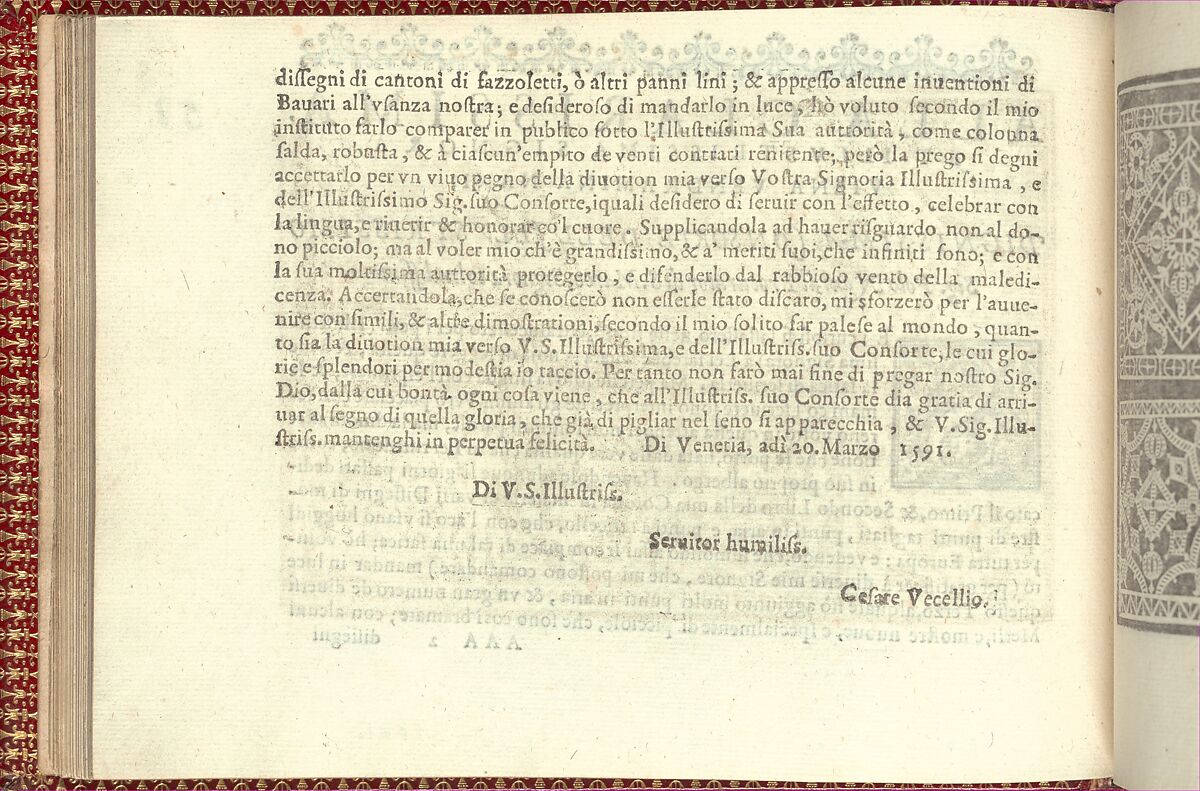 dissegni di cantoni di fazzoletti, ò altri panni lini ; & appresso alcune inuentioni di
Bauari all'vsanza nostra; e desideroso di mandarlo in luce, hò voluto secondo il mio
instituto farlo comparer in publico sotto l'Illustrissima Sua auttorità, come colonna
salda, robusta, & à ciascun'empito de venti contrari renitente; però la prego si degni
accettarlo per vn viuo pegno della diuotion mia verso Vostra Signoria Illustrissima , e
dell'Illustrissimo Sig. suo Consorte, iquali desidero di seruir con l'effetto , celebrar con
la lingua, e riuerir & honorar co'l cuore. Supplicandola ad hauer risguardo non al do-
no picciolo; ma al voler mio ch'è grandissimo, & a' meriti suoi, che infiniti sono; e con
la sua moltissima auttorità protegerlo , e difenderlo dal rabbioso vento della maledi-
cenza. Accertandola, che se conoscerò non esserle stato discaro, mi sforzerò per l'auue-
nire con simili, & altre dimostrationi, secondo il mio solito far palese al mondo , quan-
to sia la diuotion mia verso V.S.Illustrissima, e dell'Illustriss. suo Consorte, le cui glo-
rie e splendori per modestia io taccio. Per tanto non farò mai fine di pregar nostro Sig.
Dio, dalla cui bontà ogni cosa viene , che all'Illustriss. suo Consorte dia gratia di arri-
uar al segno di quella gloria, che già di pigliar nel seno si apparecchia , & V.Sig.Illu-
striss. mantenghi in perpetua felicità. Di Venetia, adì 20. Marzo 1591.
Di V.S.Illustriss.
Seruitor humiliss.
Cesare Vecellio.